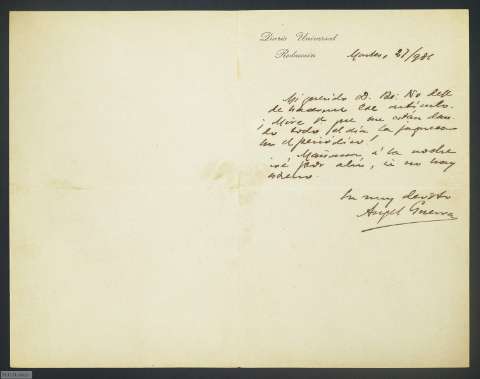 Diario Universal
Redacción
Martes, 27/
Mi querido D. No deje
de hacerme ese artículo.
¡Mire V. que me están dan
do todo el día la
en el periódico!
Mañana á la noche
iré por allí, si no hay
estreno.
Su muy devoto
Angel Guerra